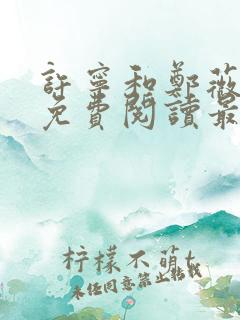 許寧和鄭薇
免費閱讀最
柠檬不萌t
未经同意禁止转载